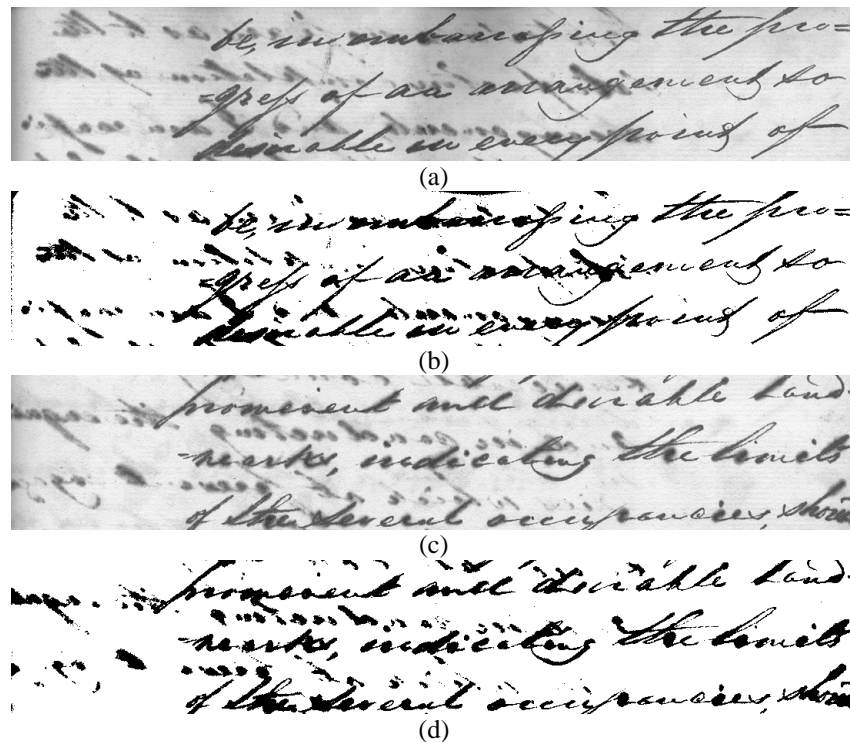 be, in embarrassing the pro=
=gress of an arrangement so
desirable in every point of
(a)
be, in embarrassing the pro=
=gress of an arrangement so
desirable in every point of
(b)
prominent and durable land-
-marks, indicating the limits
of the several occupancies, should
(c)
prominent and durable land-
-marks, indicating the limits
of the several occupancies, should
(d)